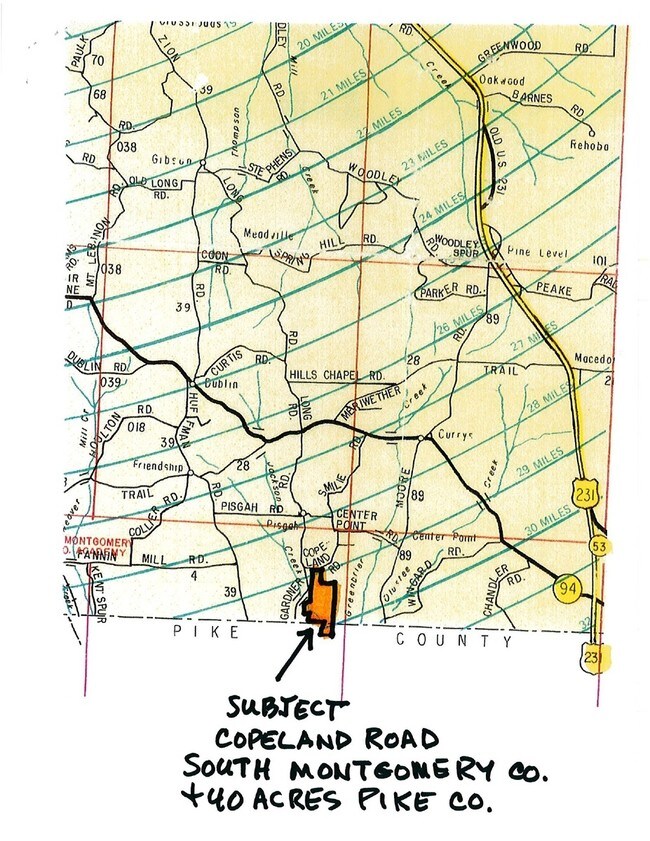 20 MILES
GREENWOOD RD.
PAULK
70
ZION
Mill
RD.
Creek
Oakwood
68
39
21 MILES
BARNES RD.
22 MILES
RD.
038
Thompson
OLD U.S. 231
Rehoba
Gibson
STEPHENS RD.
23 MILES
RD.
Creek
WOODLEY
OLD LONG RD.
LONG
24 MILES
RD.
MT LEBANON
Meadville
SPRING HILL RD.
RD.
WOODLEY SPUR
Pine Level
101
COON RD.
038
PARKER RD.
PEAKE
39
RD.
89
26 MILES
RD.
27 MILES
RD.
CURTIS
28
Macedo
DUBLIN RD.
Dublin
HILLS CHAPEL RD.
TRAIL
2
039
MERIWETHER
Creek
28 MILES
HUFFMAN
LONG
RD.
RD.
018
Mill Cr.
39
RD.
Currys
Friendship
28
29 MILES
Jackson
SMILIE
MOORE
Creek
TRAIL
RD.
RD.
89
231
COLLIER RD.
PISGAH RD.
CENTER POINT
30 MILES
Pisgah
RD.
Center Point
53
MONTGOMERY
ACADEMY
COPELAND RD.
89
RD.
FANNIN
MILL RD.
Creek
4
WINGARD
CHANDLER RD.
94
KENT SPUR
39
GARDNER
Greenbrier
Olustee
32
PIKE COUNTY
231
SUBJECT
COPELAND ROAD
SOUTH MONTGOMERY CO.
+40 ACRES PIKE CO.